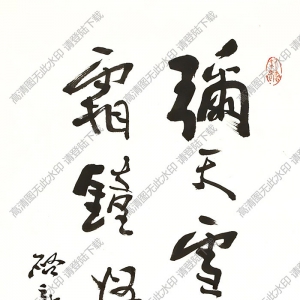 彌天雪
霜鐘
啓
高清图无此水印 请登陆下载